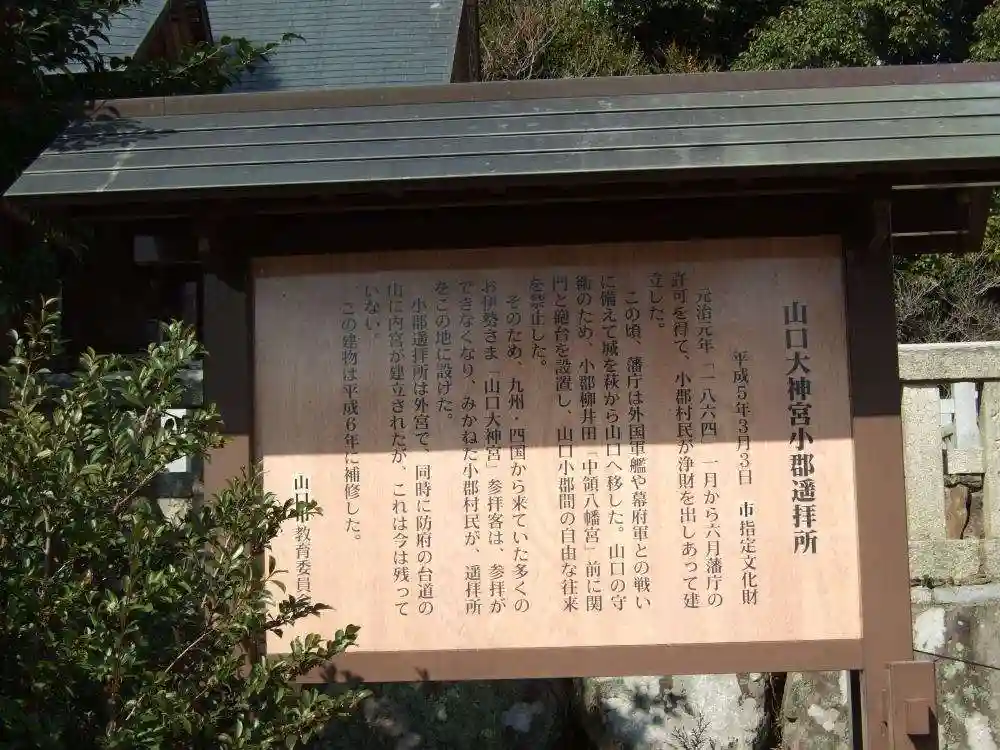 山口大神宮小郡遥拝所
平成5年3月3日 市指定文化財
元治元年「一八六四」一月から六月藩庁の
許可を得て、小郡村民が浄財を出しあって建
立した。
この頃、藩庁は外国軍艦や幕府軍との戦い
に備えて城を萩から山口へ移した。山口の守
衛のため、小郡柳井田「中領八幡宮」前に関
門と砲台を設置し、山口小郡間の自由な往来
を禁止した。
そのため、九州、四国から来ていた多くの
お伊勢さま「山口大神宮」参拝客は、参拝が
できなくなり、みかねた小郡村民が、遥拝所
をこの地に設けた。
小郡遥拝所は外宮で、同時に防府の台道の
山に内宮が建立されたが、これは今は残って
いない。
この建物は平成6年に補修した。
山口市教育委員